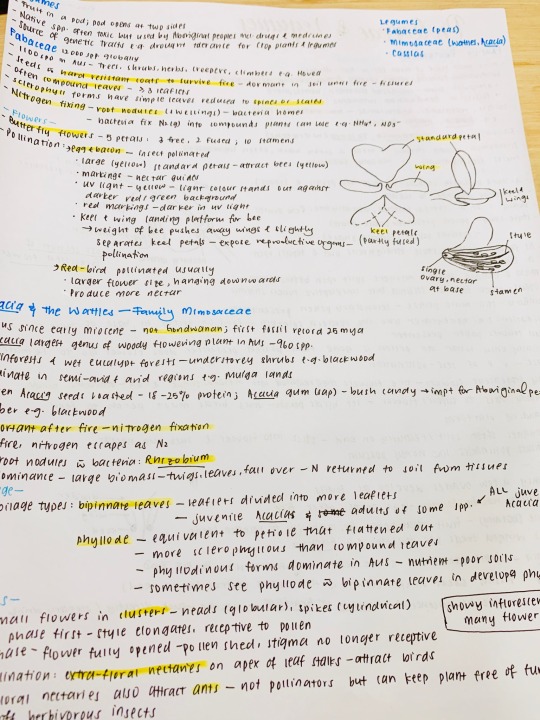 Legumes
- Fabaceae (peas)
- Mimosaceae (wattles, Acacia)
- Cassias
- Fruit in a pod; pod opens at two sides
- Native spp. often toxic but used by Aboriginal peoples
- Source of genetic traits e.g drought tolerance for crop plants & legumes
Fabaceae 12000 spp globally
- 1100 spp in Aus - Trees, shrubs, herbs, creepers, climbers e.g. Hovea
- Seeds w hard resistant coats to survive fire - dormant in soil until fire - fissures
- Often compound leaves - ≥3 leaflets
- Sclerophyll forms have simple leaves reduced to spines or scales
- Nitrogen fixing - root nodules (swellings) - bacteria homes
- bacteria fix N₂(g) into compounds plants can use e.g. NH₄⁺, NO₃⁻
- Flowers -
- Butterfly flowers - 5 petals: 3 free, 2 fused, 10 stamens
- Pollination: egg & bacon - insect pollinated
• large (yellow) standard petals - attract bees (yellow)
• markings - nectar guides
• uv light - yellow - light colour stands out against
darker red/green background
• red markings - darker in uv light
• keel & wing landing platform for bee
→ weight of bee pushes away wings & slightly
separates keel petals - expose reproductive organs -
pollination
→ Red - bird pollinated usually
• larger flower size, hanging downwards
• Produce more nectar
standard petal
wing
keel petals
(partly fused)
keel &
wings
style
single
ovary, nectar
at base
stamen
acia & the Wattles - Family Mimosaceae
us since early Miocene - not Gondwanan; first fossil record 25mya
cacia largest genus of woody flowering plant in Aus ~960 spp.
inforests & wet eucalypt forests - understorey shrubs e.g. blackwood
inate in semi-arid & arid regions e.g. mulga lands
en Acacia seeds roasted - 18-25% protein; Acacia gum (sap) - bush candy → impt for Aboriginal pe
ber e.g. blackwood
ortant after fire - nitrogen fixation
fire, nitrogen escapes as N₂
root nodules w bacteria: Rhizobium
ominance - large biomass - twigs, leaves, fall over - N returned to soil from tissues
ge -
oilage types: bipinnate leaves - leaflets divided into more leaflets
- juvenile Acacias & some adults of some spp.
ALL juve
Acacia
phyllode - equivalent to petiole that flattened out
- more sclerophyllous than compound leaves
- phyllodinous forms dominate in Aus - nutrient-poor soils
- sometimes see phyllode w bipinnate leaves in developg phy
s -
mall flowers in clusters - heads (globular), spikes (cylindrical)
showy infloresce
many flower
phase first - style elongates, receptive to pollen
hase - flower fully opened - pollen shed, stigma no longer receptive
lination: extra-floral nectaries on apex of leaf stalks - attract birds
loral nectaries also attract ants - not pollinators but can keep plant free of fun
fs herbivorous insects